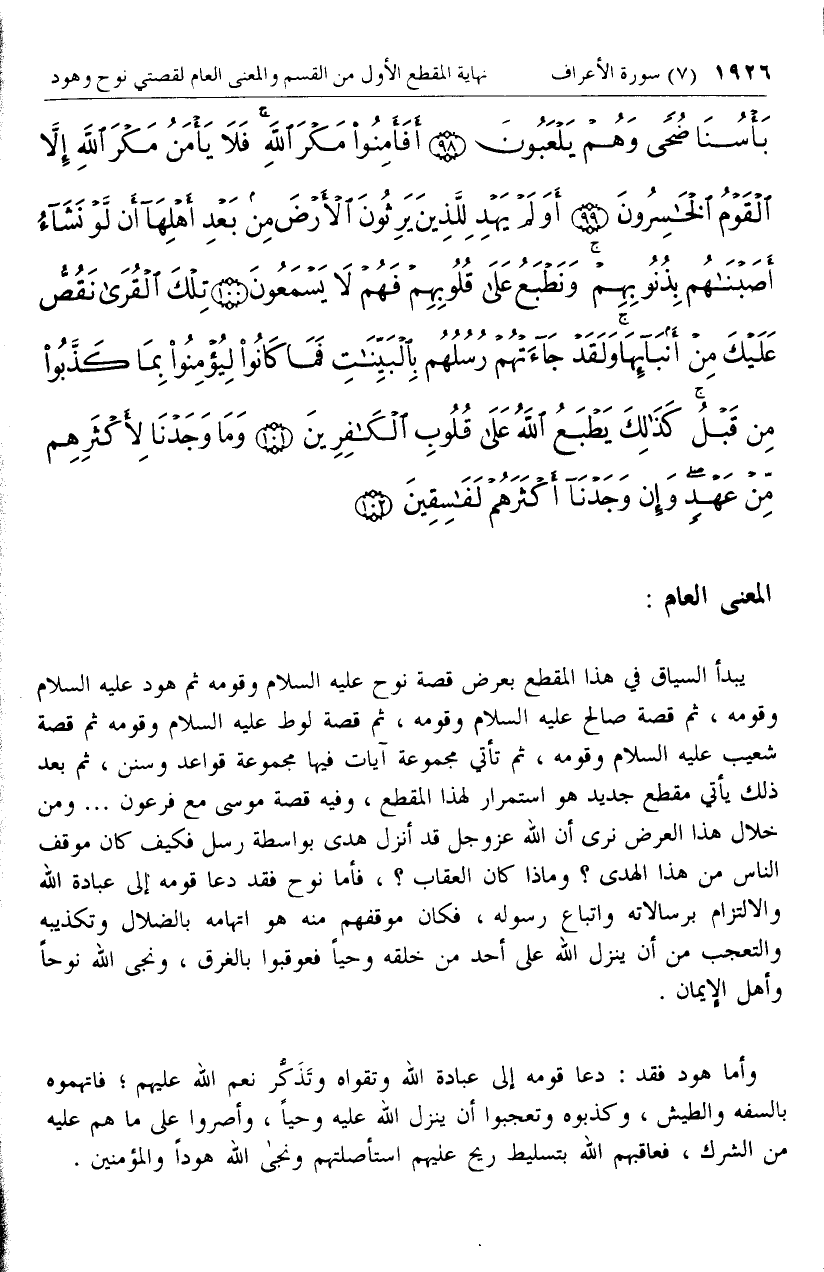 ١٩٢٦ (٧) سورة الأعراف نهاية المقطع الأول من القسم والمعنى العام لقصتي نوح وهود
بَأْسُنَا ضُحًى وَهُمْ يَلْعَبُونَ ﴿٩٨﴾ أَفَأَمِنُوا۟ مَكْرَ ٱللَّهِ ۚ فَلَا يَأْمَنُ مَكْرَ ٱللَّهِ إِلَّا
ٱلْقَوْمُ ٱلْخَـٰسِرُونَ ﴿٩٩﴾ أَوَلَمْ يَهْدِ لِلَّذِينَ يَرِثُونَ ٱلْأَرْضَ مِنۢ بَعْدِ أَهْلِهَآ أَن لَّوْ نَشَآءُ
أَصَبْنَـٰهُم بِذُنُوبِهِمْ ۚ وَنَطْبَعُ عَلَىٰ قُلُوبِهِمْ فَهُمْ لَا يَسْمَعُونَ ﴿١٠٠﴾ تِلْكَ ٱلْقُرَىٰ نَقُصُّ
عَلَيْكَ مِنْ أَنۢبَآئِهَا ۚ وَلَقَدْ جَآءَتْهُمْ رُسُلُهُم بِٱلْبَيِّنَـٰتِ فَمَا كَانُوا۟ لِيُؤْمِنُوا۟ بِمَا كَذَّبُوا۟
مِن قَبْلُ ۚ كَذَٰلِكَ يَطْبَعُ ٱللَّهُ عَلَىٰ قُلُوبِ ٱلْكَـٰفِرِينَ ﴿١٠١﴾ وَمَا وَجَدْنَا لِأَكْثَرِهِم
مِّنْ عَهْدٍ ۖ وَإِن وَجَدْنَآ أَكْثَرَهُمْ لَفَـٰسِقِينَ ﴿١٠٢﴾
المعنى العام :
يبدأ السياق في هذا المقطع بعرض قصة نوح عليه السلام وقومه ثم هود عليه السلام
وقومه ، ثم قصة صالح عليه السلام وقومه ، ثم قصة لوط عليه السلام وقومه ثم قصة
شعيب عليه السلام وقومه ، ثم تأتي مجموعة آيات فيها مجموعة قواعد وسنن ، ثم بعد
ذلك يأتي مقطع جديد هو استمرار لهذا المقطع ، وفيه قصة موسى مع فرعون ... ومن
خلال هذا العرض نرى أن الله عزوجل قد أنزل هدى بواسطة رسل فكيف كان موقف
الناس من هذا الهدى ؟ وماذا كان العقاب ؟ ، فأما نوح فقد دعا قومه إلى عبادة الله
والالتزام برسالاته واتباع رسوله ، فكان موقفهم منه هو اتهامه بالضلال وتكذيبه
والتعجب من أن ينزل الله على أحد من خلقه وحياً فعوقبوا بالغرق ، ونجى الله نوحاً
وأهل الإيمان .
وأما هود فقد : دعا قومه إلى عبادة الله وتقواه وتَذَكُّر نعم الله عليهم ؛ فاتهموه
بالسفه والطيش ، وكذبوه وتعجبوا أن ينزل الله عليه وحياً ، وأصروا على ما هم عليه
من الشرك ، فعاقبهم الله بتسليط ريح عليهم استأصلتهم ونجىٰ الله هوداً والمؤمنين .